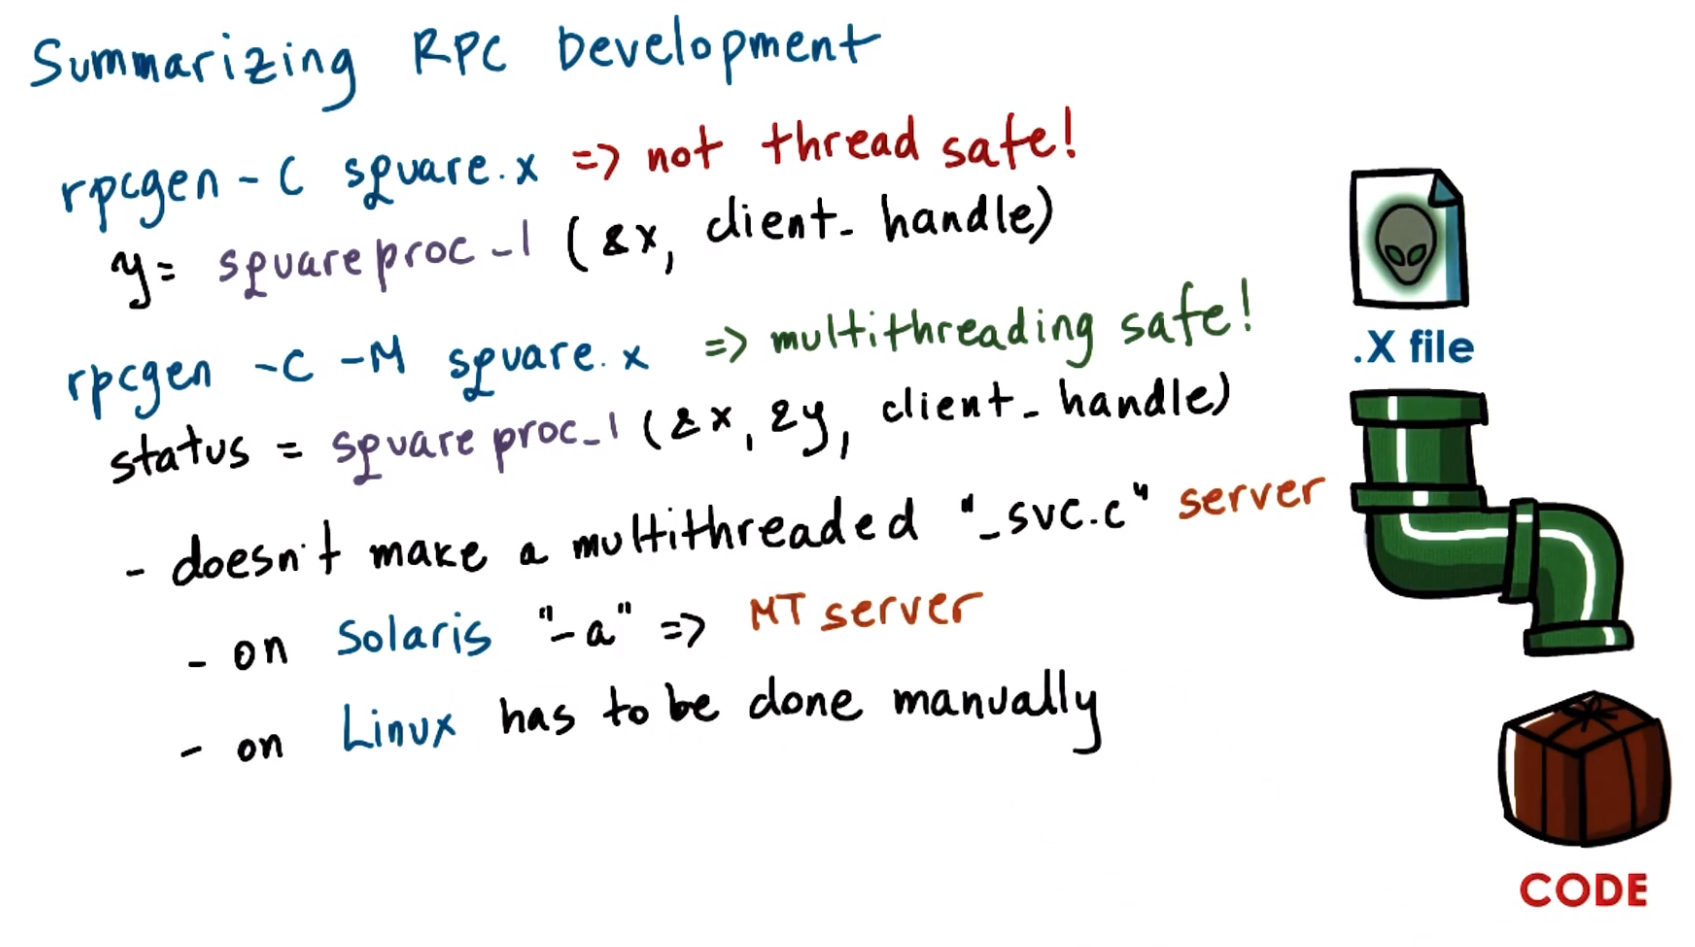 Summarizing RPC Development
rpcgen -C square.x => not thread safe!
y = squareproc_1 (&x, client_handle)
rpcgen -C -M square.x => multithreading safe!
status = squareproc_1 (&x, &y, client_handle)
- doesn't make a multithreaded "_svc.c" server
- on Solaris "-a" => MT server
- on Linux has to be done manually
.X file
CODE